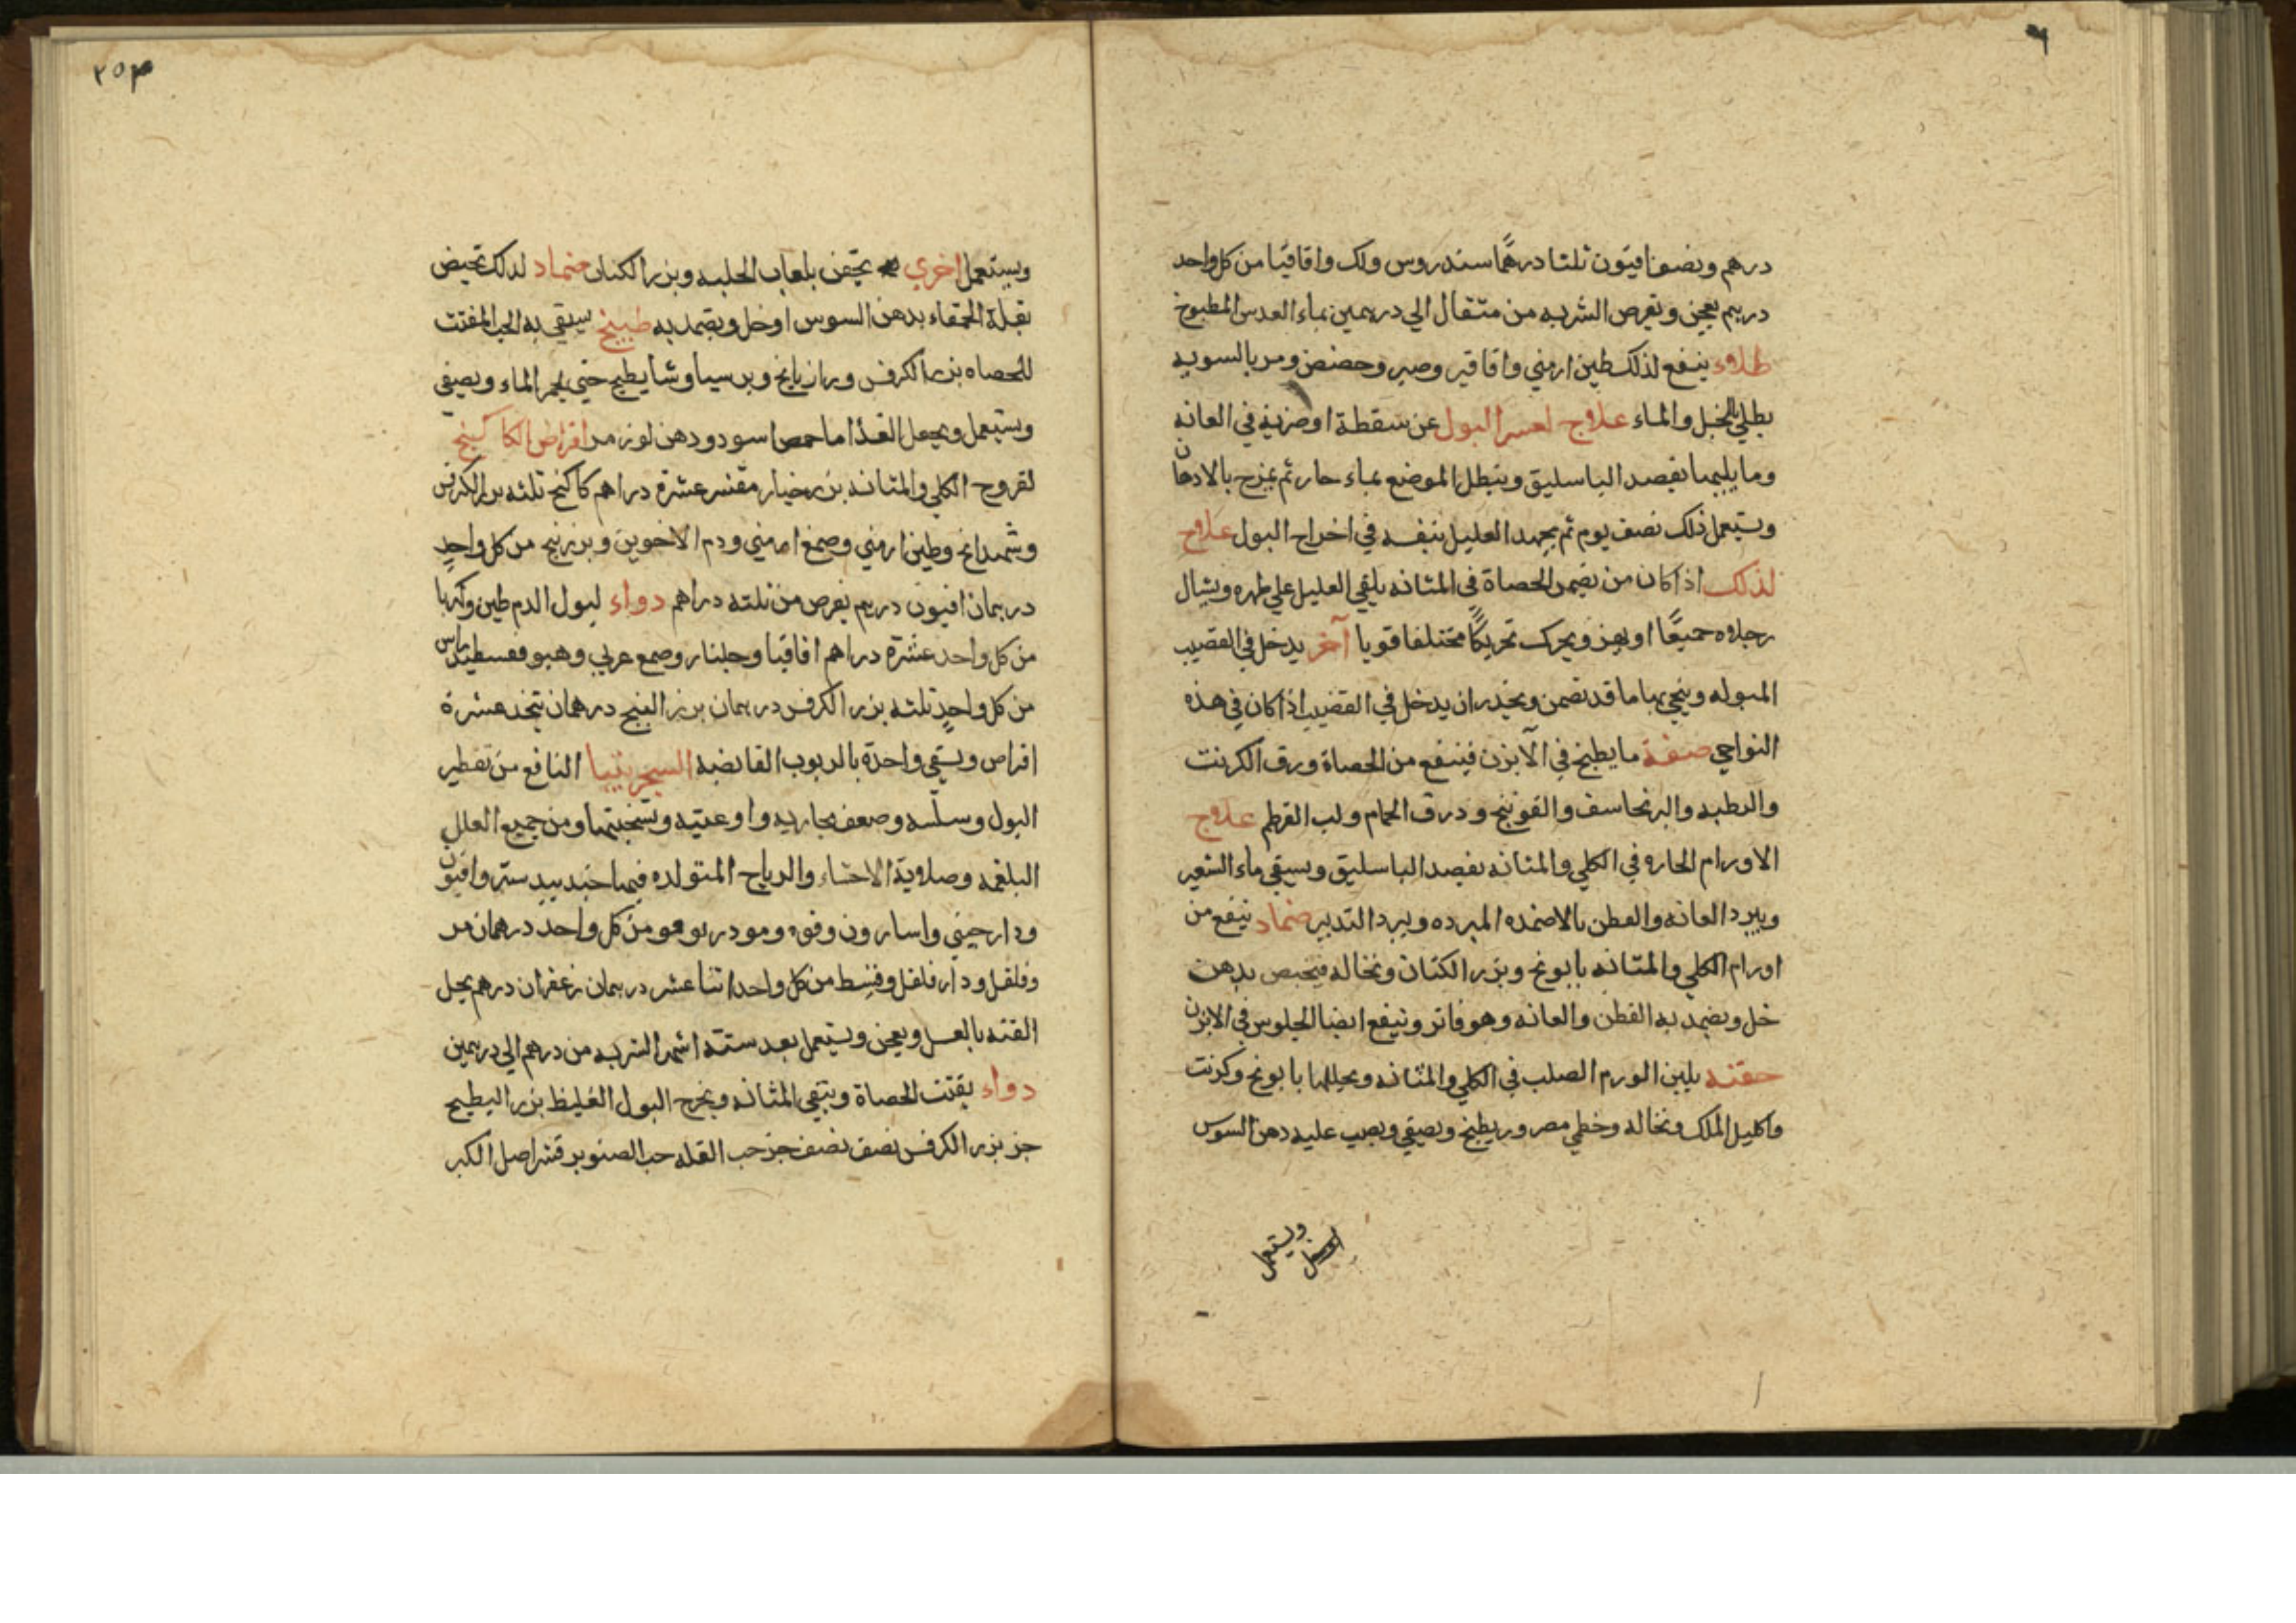 درهم ونصف افيون ثلثا درهمًا سندروس ولك واقاقيا من كل واحد
درهم يعجن ويقرص الشربه من مثقال الي درهمين بماء العدس المطبوخ
طلاء ينفع لذلك طين ارمني واقاقير وصبر وحضض ومر بالسويه
يطلي بالخل والماء علاج لعسر البول عن سقطة او ضربة في العانه
وما يليها يفصد الباسليق وينطل الموضع بماء حار ثم يمزح بالادهان
ويستعمل ذلك نصف يوم ثم يجهد العليل نفسه في اخراج البول علاج
لذلك اذا كان من تضمن الحصاة في المثانه يلقي العليل علي ظهره ويشال
رجلاه جميعًا او يهز ويحرك تحريكًا مختلفا قويا آخر يدخل في القضيب
المبوله وينحي بها ما قد تضمن ويحذر ان يدخل في القضيب اذا كان في هذه
النواحي صفة ما يطبخ في الآبزن فينفع من الحصاة ورق الكرنت
والرطبه والبرنجاسف والفوتنج ودرق الحمام ولب القرطم علاج
الاورام الحاره في الكلي والمثانه يفصد الباسليق ويسقي ماء الشعير
ويبرد العانه والقطن بالاضمده المبرده ويبرد التدبير ضماد ينفع من
اورام الكلي والمثانه بابونج وبزر الكتان ونخاله يخبص بدهن
خل ويضمد به القطن والعانه وهو فاتر وينفع ايضا الجلوس في الابزن
حقنه يلين الورم الصلب في الكلي والمثانه ويحللها بابونج وكرنت
واكليل الملك ونخاله وخطمي مصرور يطبخ ويصفي ويصب عليه دهن السوس
ويستعمل
ويستعمل اخري يحقن بلعاب الحلبه وبزر الكتان ضماد لذلك تخبض
بقلة الحمقاء بدهن السوس او خل ويضمد به طبيخ يسقي به الحب المفتت
للحصاه بزر الكرفس ورازيانج وبرسياوشا يطبخ حتي يحمر الماء ويصفي
ويستعمل ويجعل الغذا ما حمص اسود ودهن لوز مر اقراص الكاكنج
لقروح الكلي والمثانه بزر خيار مقشر عشرة دراهم كاكنج ثلثه بزر الكرفس
وشهدانج وطين ارمني وصمغ ارمني ودم الاخوين وبزر بنج من كل واحدٍ
درهمان افيون درهم يقرص من ثلثه دراهم دواء لبول الدم طين وكهربا
من كل واحد عشرة دراهم اقاقيا وجلنار وصمغ عربي وهيوفقسطيداس
من كل واحدٍ ثلثه بزر الكرفس درهمان بزر البنج درهمان يتخذ عشرة
اقراص ويسقي واحدة بالربوب القابضه السجرينيا النافع من تقطير
البول وسلسه وضعف مجاريه واوعيته وتسخنتها ومن جميع العلل
البلغمه وصلابة الاحشاء والرياح المتولده فيها جندبيدستر وافيون
ودارصيني واسارون وفوه ومو ودوقو من كل واحد درهمان مر
وفلفل ودارفلفل وقسط من كل واحد اثنا عشر درهمان زعفران درهم يحل
القنه بالعسل ويعجن ويستعمل بعد ستة اشهر الشربه من درهم الي درهمين
دواء يفتت الحصاة وينقي المثانه ويخرج البول الغليظ بزر البطيخ
جز بزر الكرفس نصف نصف جز حب القله حب الصنوبر قشر اصل الكبر